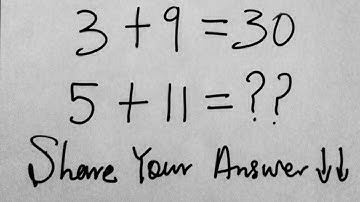 3 + 9 = 30
5 + 11 = ??
Share Your Answer ↓↓